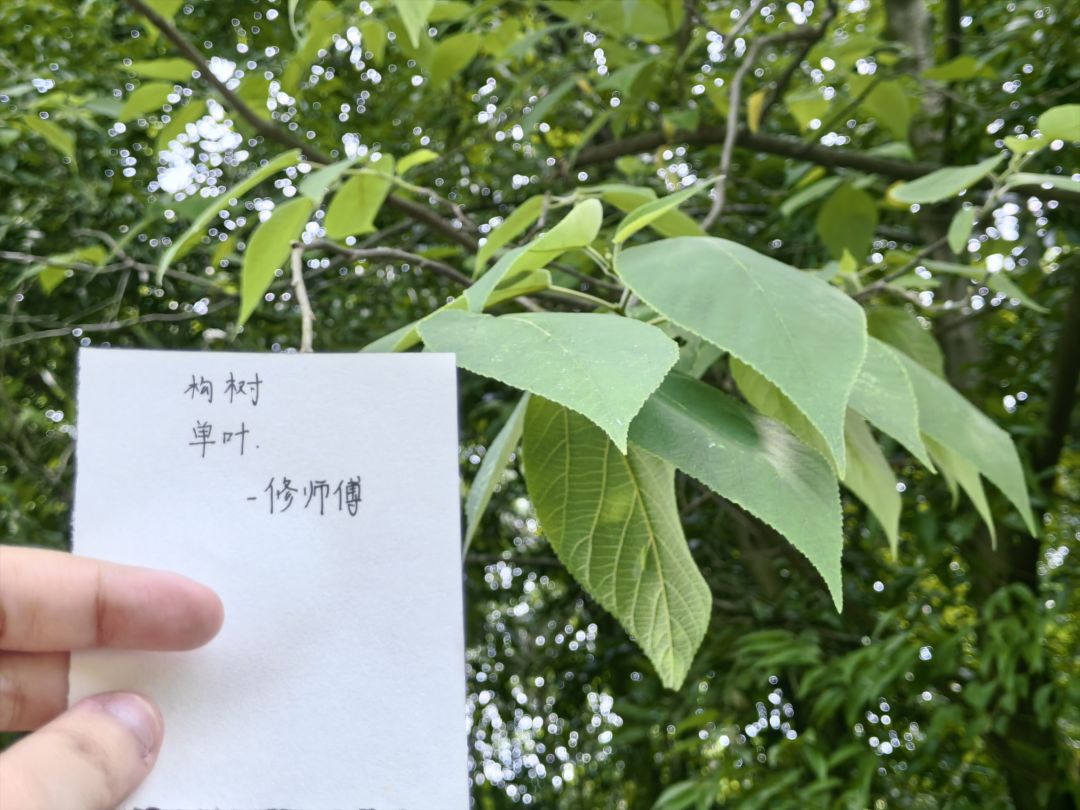 构树
单叶.
-修师傅